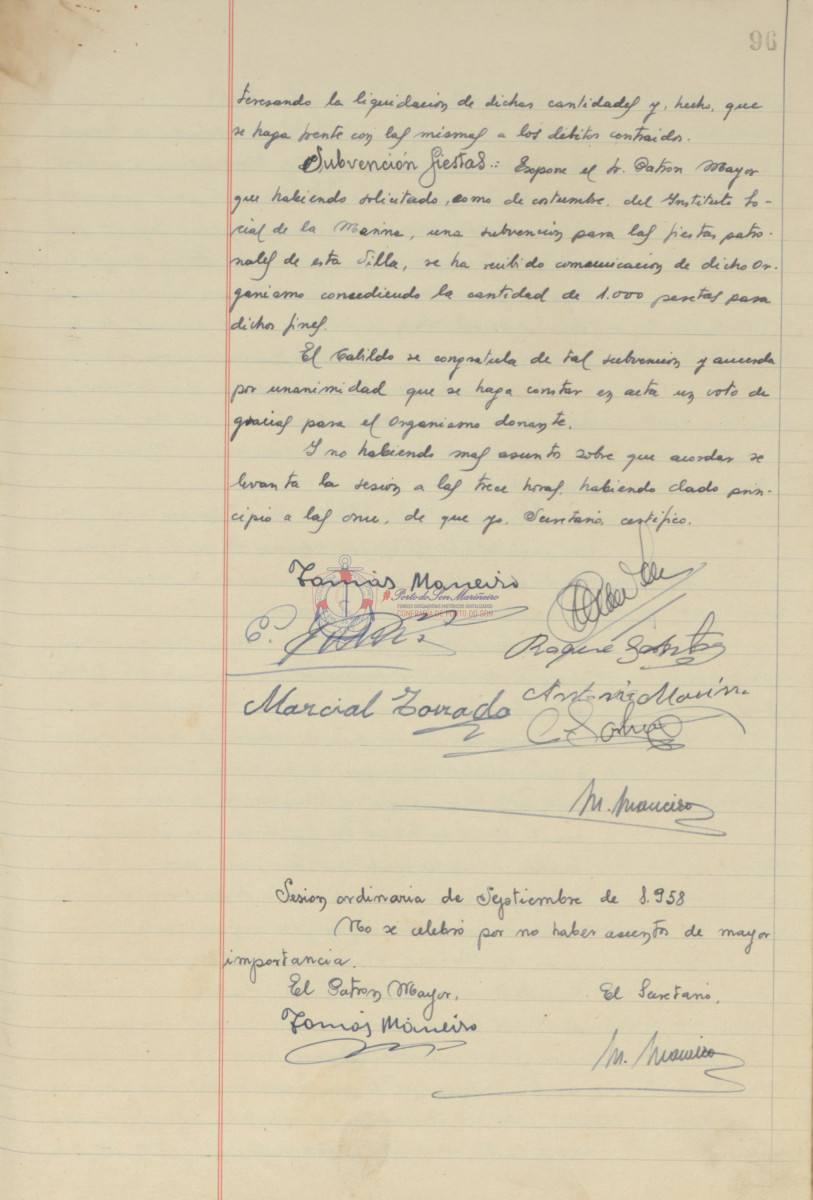 96
teresando la liquidacion de dichas cantidades y, hecho, que
se haga frente con las mismas a los débitos contraidos.
Subvención fiestas.: Expone el Sr. Patron Mayor
que habiendo solicitado, como de costumbre, del Instituto So-
cial de la Marina, una subvencion para las fiestas patro-
nales de esta Villa, se ha recibido comunicacion de dicho Or-
ganismo concediendo la cantidad de 1.000 pesetas para
dichos fines.
El Cabildo se congratula de tal subvencion y acuerda
por unanimidad que se haga constar en acta un voto de
gracias para el Organismo donante.
Y no habiendo mas asuntos sobre que acordar se
levanta la sesion a las trece horas, habiendo dado prin-
cipio a las once, de que yo, Secretario, certifico.
Tomás Maneiro
Porto do Son Mariñeiro
FONDOS DOCUMENTAIS HISTÓRICOS DIXITALIZADOS
CONFRARÍA DE PORTO DO SON
Roque
Marcial Torrado
Antonio
M. Maneiro
Sesion ordinaria de Septiembre de 1.958
No se celebró por no haber asuntos de mayor
importancia.
El Patron Mayor,
El Secretario,
Tomás Maneiro
M. Maneiro